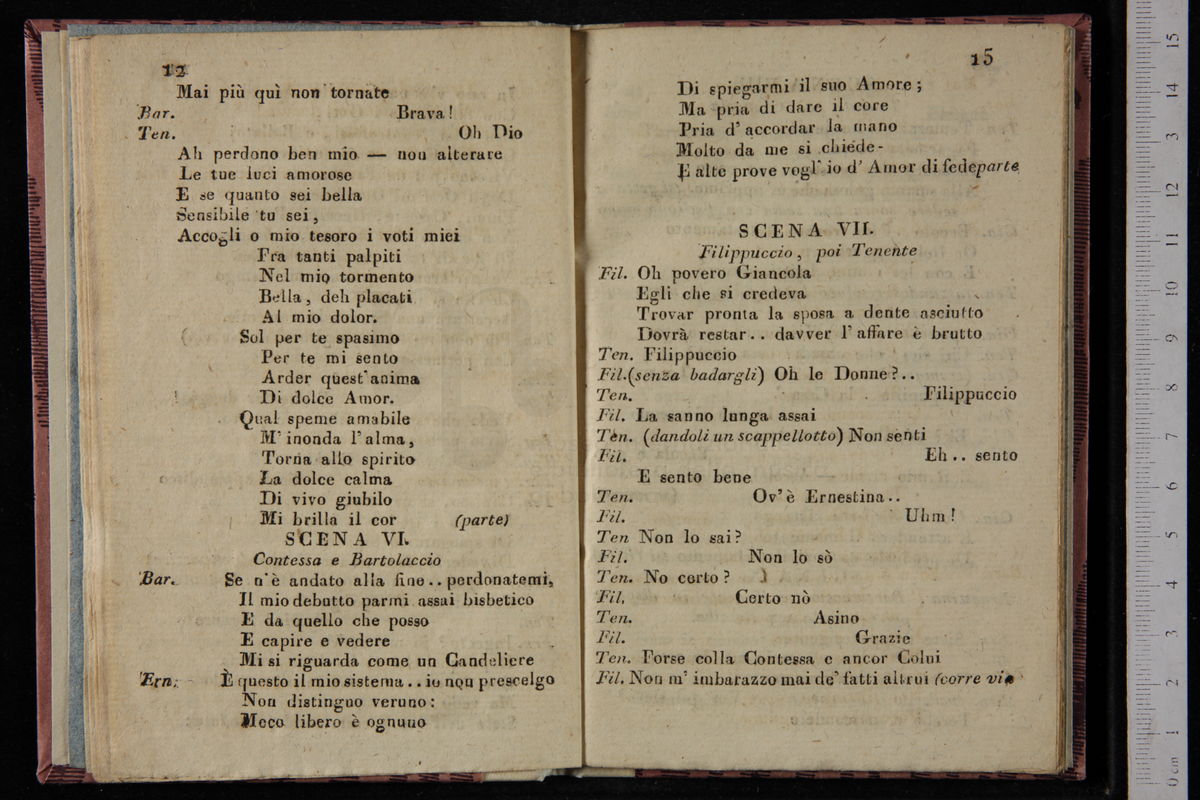 12
Mai più quì non tornate
Bar. Brava!
Ten. Oh Dio
Ah perdono ben mio — non alterare
Le tue luci amorose
E se quanto sei bella
Sensibile tu sei,
Accogli o mio tesoro i voti miei
Fra tanti palpiti
Nel mio tormento
Bella, deh placati
Al mio dolor.
Sol per te spasimo
Per te mi sento
Arder quest'anima
Di dolce Amor.
Qual speme amabile
M'inonda l'alma,
Torna allo spirito
La dolce calma
Di vivo giubilo
Mi brilla il cor (parte)
SCENA VI.
Contessa e Bartolaccio
Bar. Se n'è andato alla fine.. perdonatemi,
Il mio debutto parmi assai bisbetico
E da quello che posso
E capire e vedere
Mi si riguarda come un Candeliere
Ern. È questo il mio sistema.. io non prescelgo
Non distinguo veruno:
Meco libero è ognuno
15
Di spiegarmi il suo Amore;
Ma pria di dare il core
Pria d'accordar la mano
Molto da me si chiede-
E alte prove vogl'io d'Amor di fede parte
SCENA VII.
Filippuccio, poi Tenente
Fil. Oh povero Giancola
Egli che si credeva
Trovar pronta la sposa a dente asciutto
Dovrà restar.. davver l'affare è brutto
Ten. Filippuccio
Fil. (senza badargli) Oh le Donne?..
Ten. Filippuccio
Fil. La sanno lunga assai
Ten. (dandoli un scappellotto) Non senti
Fil. Eh.. sento
E sento bene
Ten. Ov'è Ernestina..
Fil. Uhm!
Ten Non lo sai?
Fil. Non lo sò
Ten. No certo?
Fil, Certo nò
Ten. Asino
Fil. Grazie
Ten. Forse colla Contessa e ancor Colui
Fil. Non m'imbarazzo mai de' fatti altrui (corre via
0 cm 1 2 3 4 5 6 7 8 9 10 11 12 13 14 15